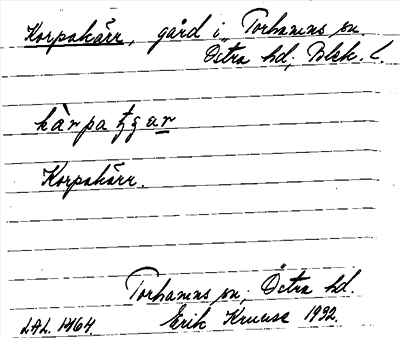 Korpakärr, gård i Torhamns sn.
Östra hd; Blek. l.
Korpakärr.
Torhamns sn; Östra hd.
Erik Kruuse 1932.
LAL. 1464.